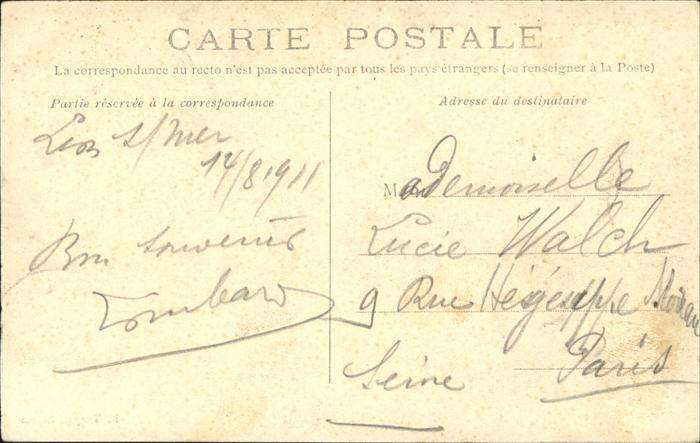 CARTE POSTALE
La correspondance au recto n'est pas acceptée par tous les pays étrangers (se renseigner à la Poste)
Partie réservée à la correspondance
s/mer
14/8 1911
Bon Souvenir
Lombard
Adresse du destinataire
Mademoiselle
Lucie Walch
9 Rue Hégésippe Moreau
Paris
Seine